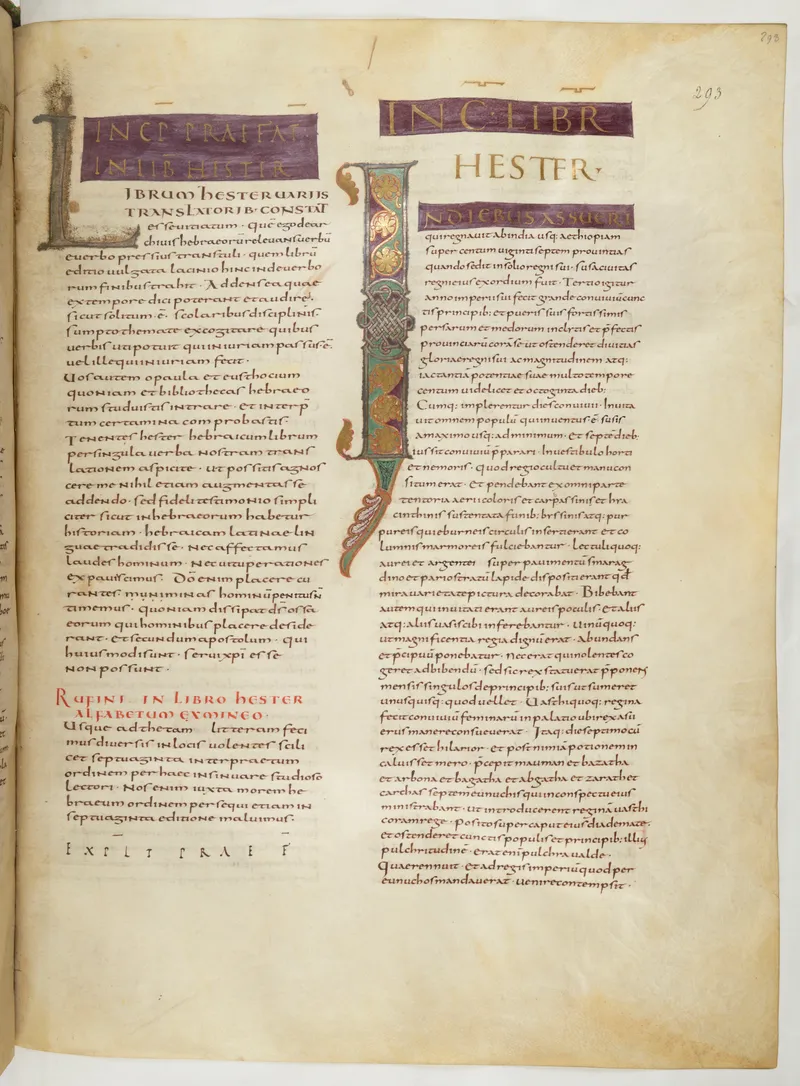 293
293
INCP PRAEFAT
IN LIB HESTER
LIBRUM HESTER UARIIS
TRANSLATORIB· CONSTAT
esse uitiatum· Quē ego de ar
chiuis hebraeorū releuans uerbū
e uerbo pressius transtuli· quem librū
editio uulgata lacinio hinc inde uerbo
rum finibus trahit· Addens ea quae
ex tempore dici poterant et audiri·
sicut solitum ē· scolaribus disciplinis·
sumpto themate excogitare quibus
uerbis uti potuit qui iniuriam passus ē·
uel ille qui iniuriam fecit·
Uos autem o paula et eusthocium
quoniam et bibliothecas hebraeo
rum studuistis intrare· Et interp̄
tum certamina comprobastis·
Tenentes hester hebraicum librum
per singula uerba nostram trans
lationem aspicite· ut possitis agnos
cere me nihil etiam augmentasse
addendo· sed fideli testimonio simpli
citer sicut in hebraeorum habetur
historiam· hebraicam latinae lin
guae tradidisse· Nec affectamus
laudes hominum· Nec uituperationes
expauissimus· Dō enim placere cu
rantes minas hominū penitus ñ
timemus· quoniam dissipat dˢ ossa
eorum qui hominibus placere deside
rant· Et secundum apostolum· qui
huiusmodi sunt· serui xp̄i esse
non possunt·
RUFINI IN LIBRO HESTER
ALFABETUM EX MINEO·
Usque ad thetam litteram feci
mus diuersis in locis uolentes scili
cet septuaginta interpraetum
ordinem per haec insinuare studiose
lectori· Nos enim iuxta morem he
braeum ordinem persequi etiam in
septuaginta editione maluimus·
EXPLIT PRAEF
INC· LIBR
HESTER·
IN DIEBUS ASSUERI
qui regnauit ab india usq; aethiopiam
super centum uiginti septem prouintias
quando sedit in solio regni sui· susa ciuitas
regni eius exordium fuit· Tertio igitur
anno imperii sui fecit grande conuiuiū cunc
tis principib; et pueris suis fortissimis
persarum et medorum inclytis et p̄fectis
prouinciarū corā se ut ostenderet diuitias
gloriae regni sui ac magnitudinem atq;
iactantiā potentiae suae multo tempore
centum uidelicet et octoginta dieb;
Cumq; implerentur dies conuiuii· Inuita
uit omnem populū qui inuentus ē susis
a maximo usq; ad minimum· Et septē dieb;
iussit conuiuiū p̄parari· In uestibulo horti
et nemoris· quod regio cultu et manu con
situm erat· Et pendebant ex omni parte
tentoria aerii coloris et carpasini et hia
cinthini sustentata funib; byssinis atq; pur
pureis qui eburneis circulis inserti erant et co
lumnis marmoreis fulciebantur· Lectuli quoq;
aurei et argentei super pauimentū smarag
dino et pario stratū lapide dispositi erant qđ
mira uarietate pictura decorabat· Bibebant
autem qui inuitati erant aureis poculis· et aliis
atq; aliis uasis cibi inferebantur· Uinū quoq;
ut magnificentia regia dignū erat· Abundans
et p̄cipuū ponebatur· Nec erat qui nolentes co
geret ad bibendū· sed sic rex statuerat p̄ponens
mensis singulos de principib; suis ut sumeret
unusquisq; quod uellet· Uasthi quoq; regina
fecit conuiuiū feminarū in palatio ubi rex asu
erus manere consueuerat· Itaq; die septimo cū
rex esset hilarior· et post nimiā potionem in
caluisset mero· p̄cepit mauman et bazatha
et arbona et bagatha et abgatha et zarath et
carchas septem eunuchis qui in conspectu eius
ministrabant· ut introducerent reginā uasthi
coram rege· Posito super caput eius diademate·
Et ostenderet cunctis populis et principib; illius
pulchritudinē· erat enī pulchra ualde·
Quae rennuit· Et ad regis imperiū quod per
eunuchos mandauerat· uenire contempsit·